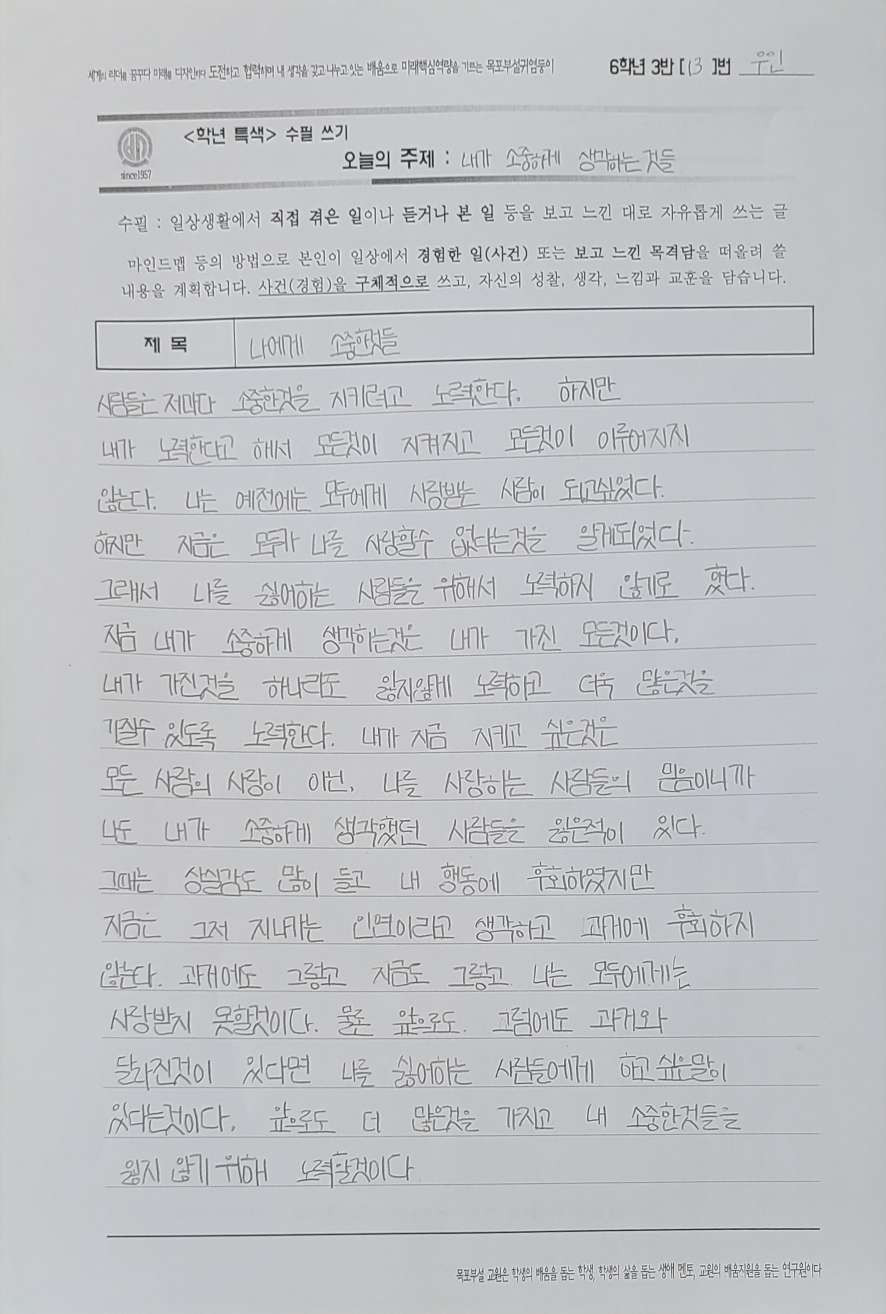 세계의 리더를 꿈꾸다 미래를 디자인하다 도전하고 협력하며 내 생각을 갖고 나누고 잇는 배움으로 미래핵심역량을 기르는 목포부설귀염둥이
6학년 3반 [13]번 우인
since1957
<학년 특색> 수필 쓰기
오늘의 주제 : 내가 소중하게 생각하는것들
수필 : 일상생활에서 직접 겪은 일이나 듣거나 본 일 등을 보고 느낀 대로 자유롭게 쓰는 글
마인드맵 등의 방법으로 본인이 일상에서 경험한 일(사건) 또는 보고 느낀 목격담을 떠올려 쓸
내용을 계획합니다. 사건(경험)을 구체적으로 쓰고, 자신의 성찰, 생각, 느낌과 교훈을 담습니다.
제 목
나에게 소중한것들
사람들은 저마다 소중한것을 지키려고 노력한다. 하지만
내가 노력한다고 해서 모든것이 지켜지고 모든것이 이루어지지
않는다. 나는 예전에는 모두에게 사랑받는 사람이 되고싶었다.
하지만 지금은 모두가 나를 사랑할수 없다는것을 알게되었다.
그래서 나를 싫어하는 사람들을 위해서 노력하지 않기로 했다.
지금 내가 소중하게 생각하는것은 내가 가진 모든것이다.
내가 가진것을 하나라도 잃지않게 노력하고 더욱 많은것을
가질수 있도록 노력한다. 내가 지금 지키고 싶은것은
모든 사람의 사랑이 아닌, 나를 사랑하는 사람들의 믿음이니까
나도 내가 소중하게 생각했던 사람들을 잃은적이 있다.
그때는 상실감도 많이 들고 내 행동에 후회하였지만
지금은 그저 지나가는 인연이라고 생각하고 과거에 후회하지
않는다. 과거에도 그렇고 지금도 그렇고 나는 모두에게는
사랑받지 못할것이다. 물론 앞으로도. 그럼에도 과거와
달라진것이 있다면 나를 싫어하는 사람들에게 하고싶은말이
있다는것이다. 앞으로도 더 많은것을 가지고 내 소중한것들을
잃지 않기 위해 노력할것이다
목포부설 교원은 학생의 배움을 돕는 학생, 학생의 삶을 돕는 생애 멘토, 교원의 배움지원을 돕는 연구원이다